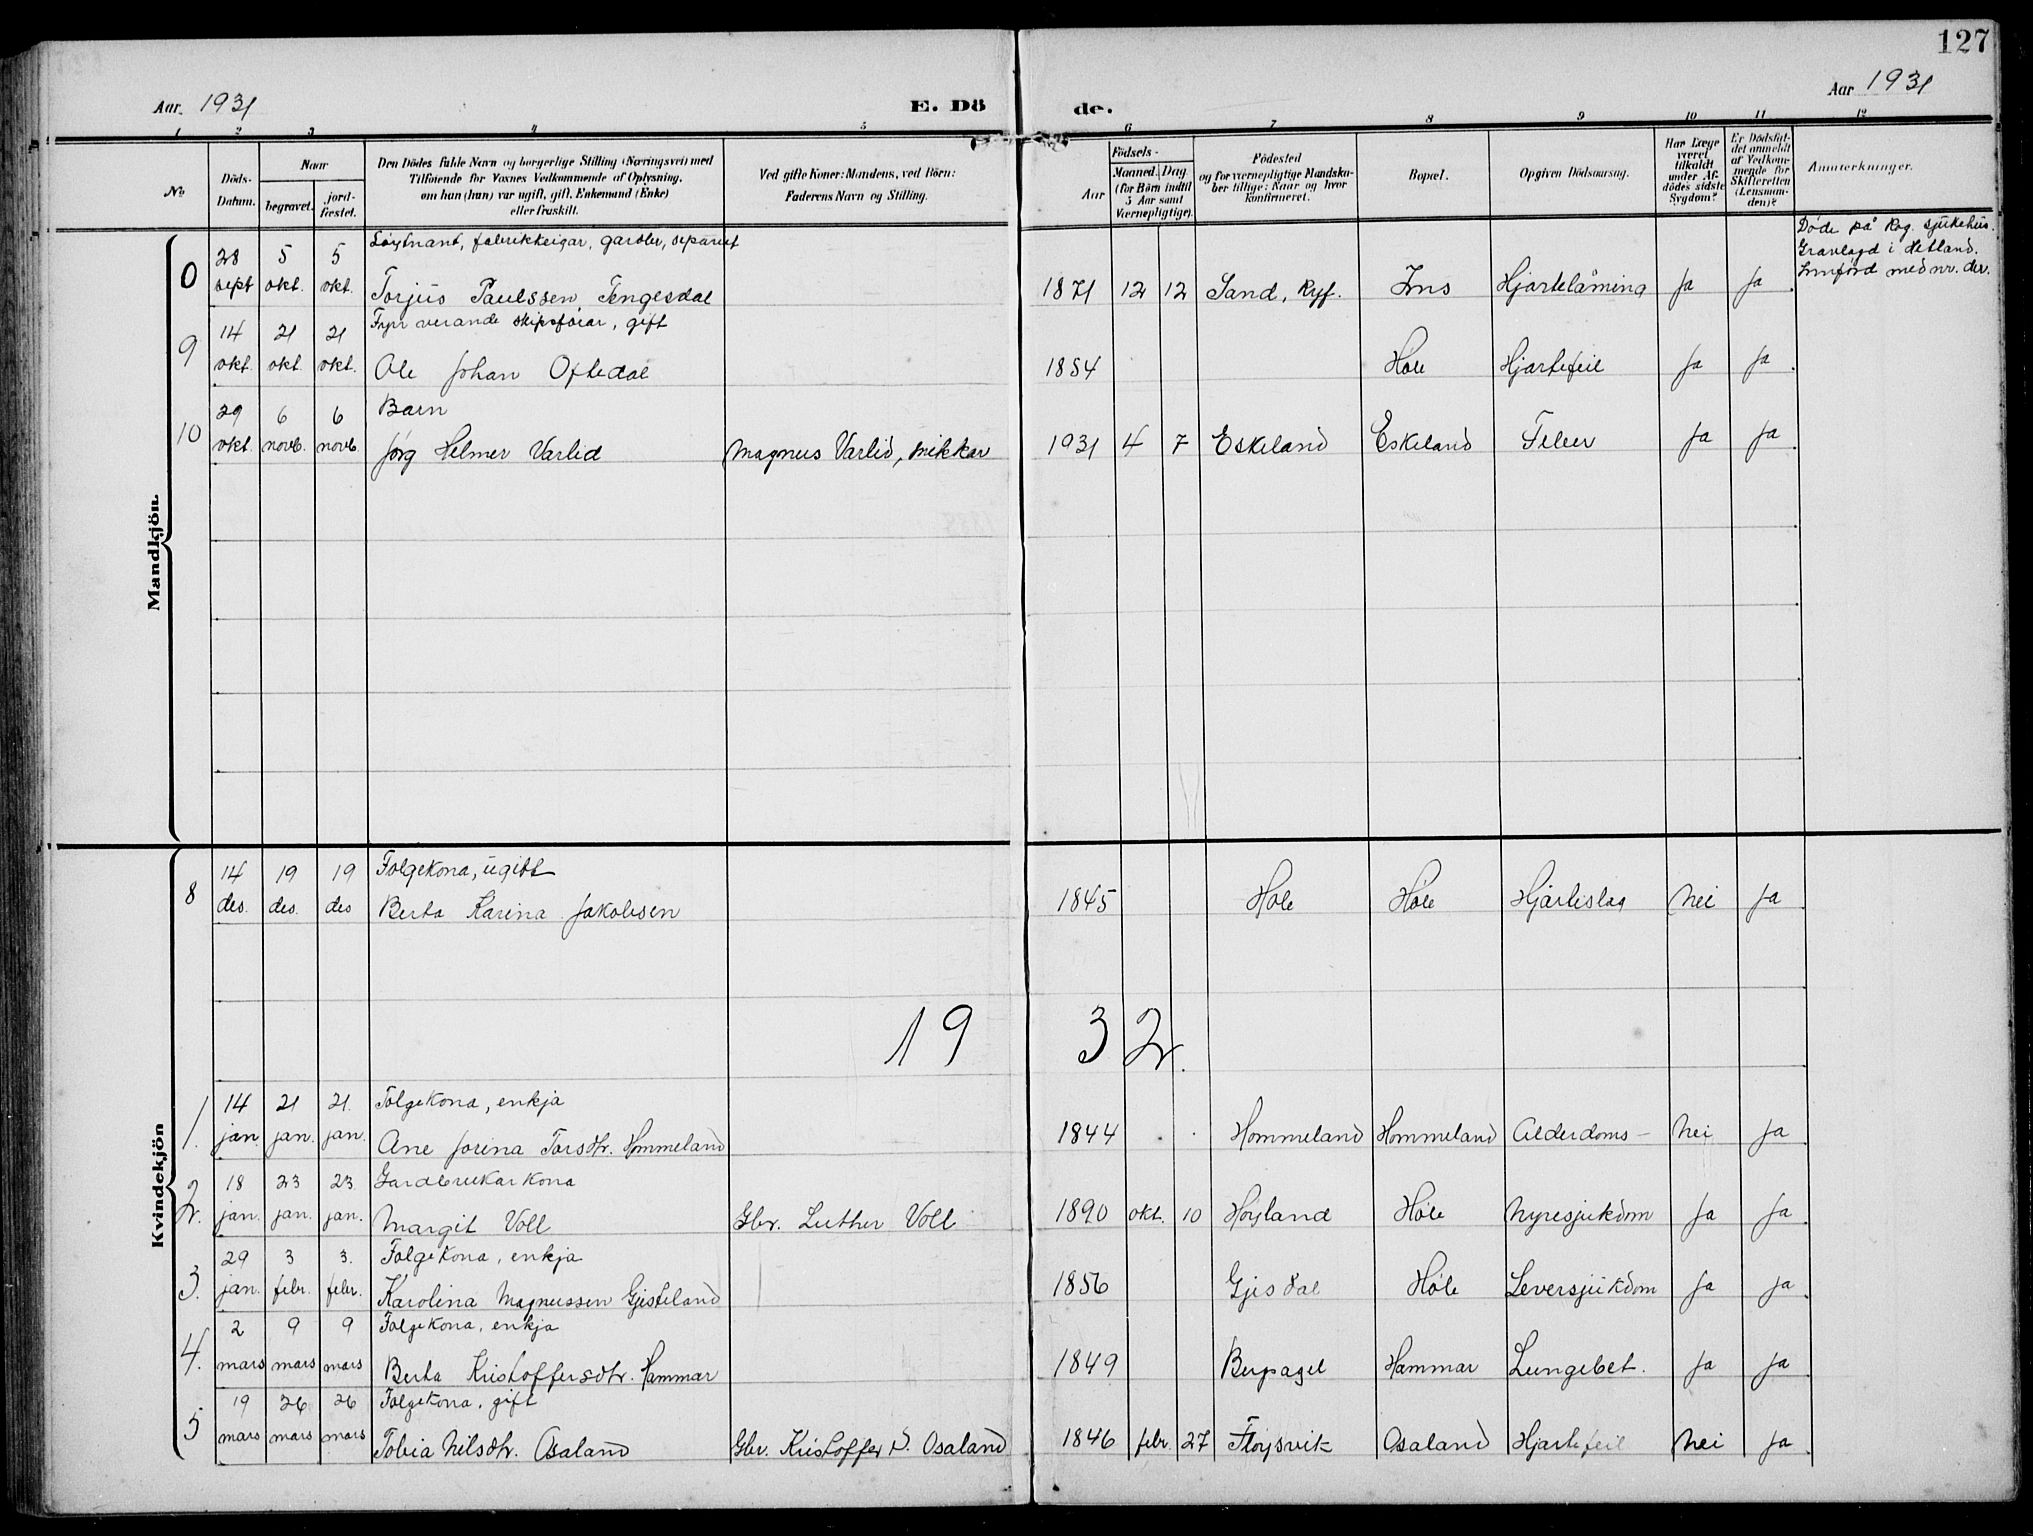 127
Aar 1931 E. Dö de. Aar 1931
1 2 3 4 5 6 7 8 9 10 11 12
No
Döds-Datum.
Naar
begravet.
jord-fæstet.
Den Dödes fulde Navn og borgerlige Stilling (Næringsvei) med
Tilföiende for Voxnes Vedkommende af Oplysning,
om han (hun) var ugift, gift, Enkemand (Enke)
eller fraskilt.
Ved gifte Koner: Mandens, ved Börn:
Faderens Navn og Stilling.
Födsels-
Aar
Maaned. Dag
(for Börn indtil
5 Aar samt
Værnepligtige).
Födested
og for værnepligtige Mandska-
ber tillige: Naar og hvor
konfirmeret.
Bopæl.
Opgiven Dödsaarsag.
Har Læge
været
tilkaldt
under Af-
dödes sidste
Sygdom?
Er Dödsfal-
det anmeldt
af Vedkom-
mende for
Skifteretten
(Lensman-
den)?
Anmerkninger.
Mandkjön.
Løytnant, fabrikkeigar, gardbr, separert
0 28 sept 5 okt. 5 okt. Torjus Paulssen Tengesdal 1871 12 12 Sand, Ryf. Ims Hjartelåming Ja Ja
Døde på Rog. sjukehus.
Gravlagd i Hetland.
Innførd med nr. der.
Fyrr verande skipsførar, gift
9 14 okt. 21 okt. 21 okt. Ole Johan Oftedal 1854 Høle Hjartefeil Ja Ja
Barn
10 29 okt. 6 novb. 6 novb. Jørg Helmer Varlid Magnus Varlid, snikkar 1931 4 7 Eskeland Eskeland Feber Ja Ja
Kvindekjön
Folgekona, ugift
8 14 des. 19 des. 19 des Berta Karina Jakobsen 1845 Høle Høle Hjarteslag Nei Ja
1932.
Folgekona, enkja
1. 14 jan. 21 jan. 21. jan. Ane Jorina Torsdtr. Hommeland 1844 Hommeland Hommeland Alderdoms- Nei Ja
Gardbrukarkona
2. 18 jan. 23 jan. 23 jan. Margit Voll Gbr. Luther Voll 1890 okt. 10 Høyland Høle Nyresjukdom Ja Ja
Folgekona, enkja
3. 29 jan. 3 febr. 3. febr. Karolina Magnussen Gjesteland 1856 Gjesdal Høle Leversjukdom Ja Ja
Folgekona, enkja
4. 2 mars 9 mars 9 mars Berta Kristoffersdtr. Hammar 1849 Bergsagel Hammar Lungebet. Ja Ja
Folgekona, gift
5 19 mars 26 mars 26 mars Tobia Nilsdtr. Osaland Gbr. Kristoffer S. Osaland 1846 febr. 27 Fløysvik Osaland Hjartefeil Nei Ja